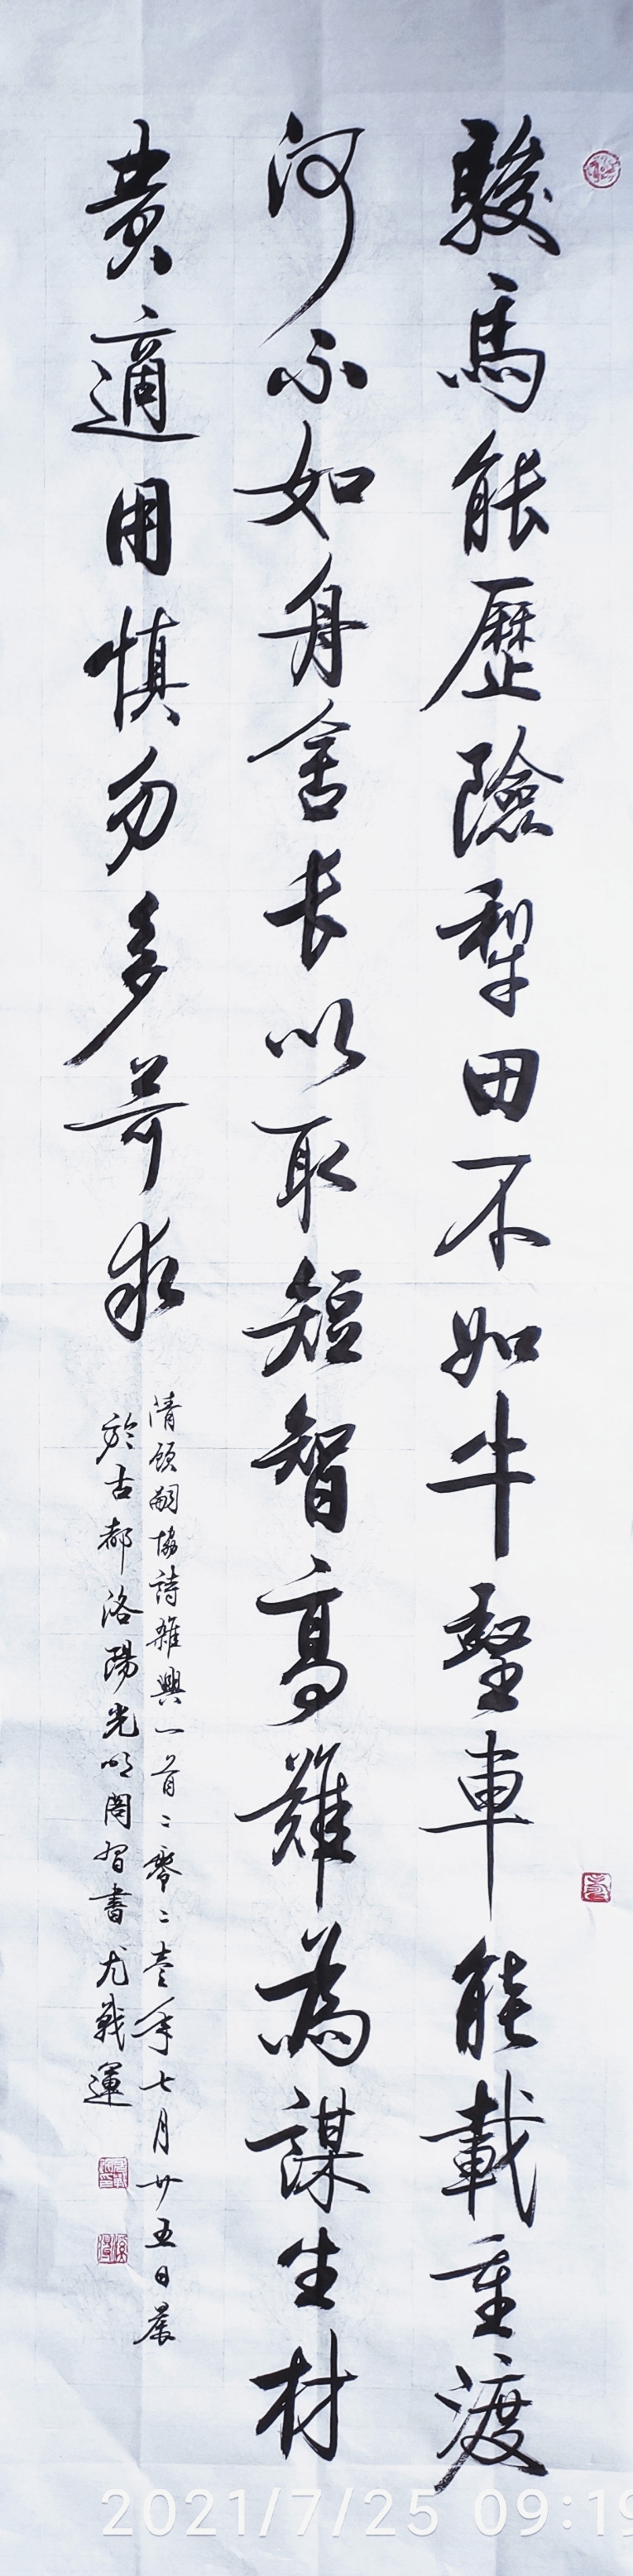 駿馬能歷險犁田不如牛堅車能載重渡
河不如舟舍長以取短智高難為謀生材
貴適用慎勿多苛求
清顧嗣協詩雜興一首二零二壹年七月廿五日晨
於古都洛陽光明閣習書尤戰運
2021/7/25 09:19